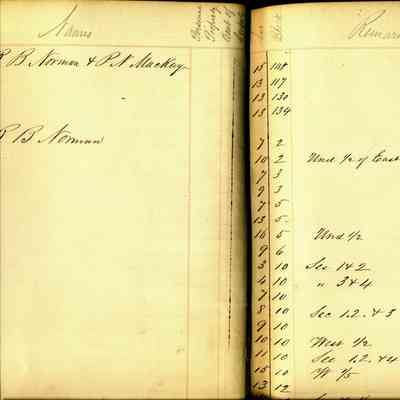 Names
R B Norman & P N Mackay
R B Norman
Lot Block Remar
15 118
13 117
13 130
13 134
7 2
10 2 Und 1/2 of East
7 3
9 3
7 5
13 5
16 5 Und 1/2
9 6
3 10 Sec 1 & 2
4 10 " 3 & 4
7 10
8 10 Sec 1.2. & 3
9 10
10 10 West 1/2
11 10 Sec 1.2. & 4
15 10 W 1/5
13 12